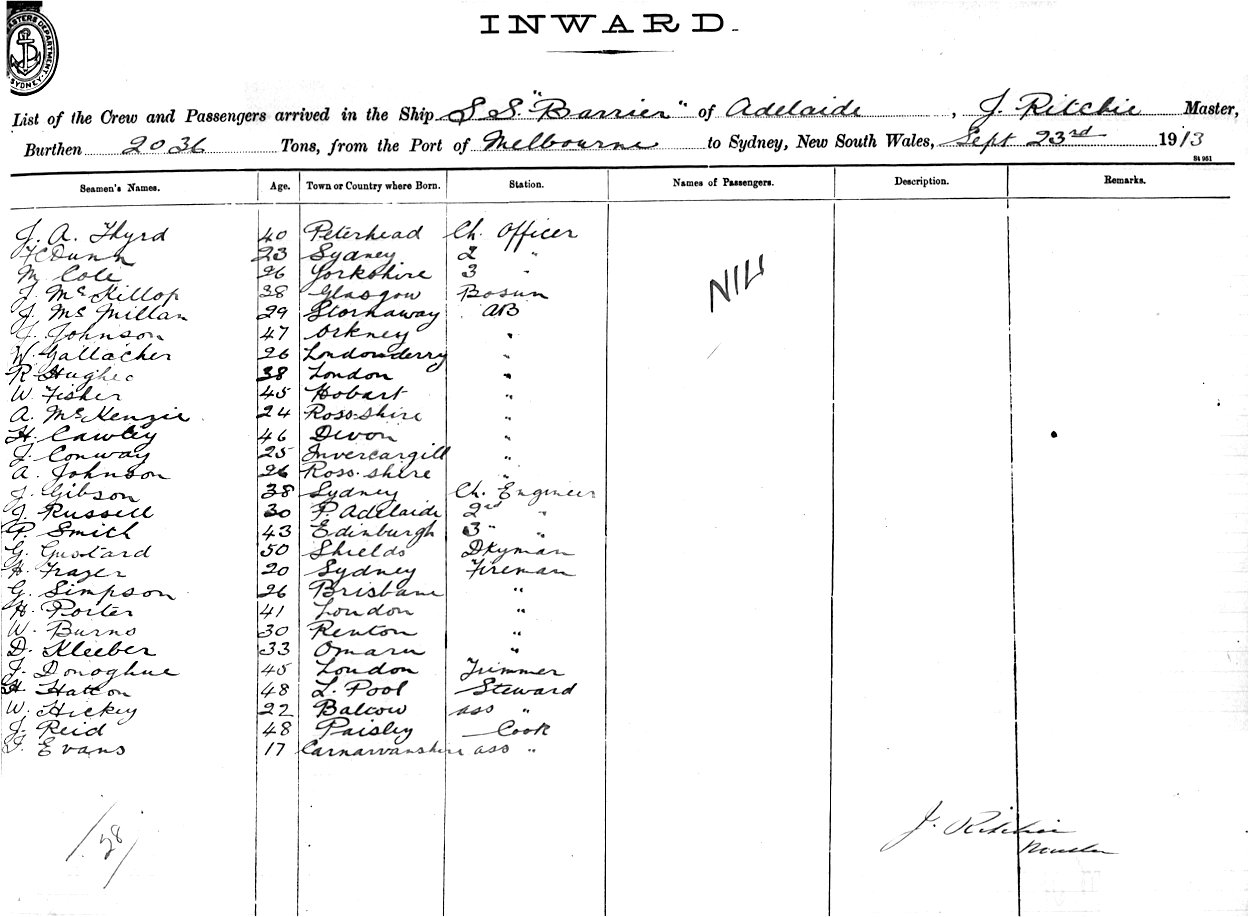 MASTERS DEPARTMENT. SYDNEY.
INWARD.
List of the Crew and Passengers arrived in the Ship S S. "Barrier" of Adelaide, J. Ritchie Master,
Burthen 2036 Tons, from the Port of Melbourne to Sydney, New South Wales, Sept 23rd 1913
St 961
Seamen's Names. Age. Town or Country where Born. Station. Names of Passengers. Description. Remarks.
J. A. Thyrd 40 Peterhead Ch. Officer
Dunn 23 Sydney 2 "
M Cole 26 Yorkshire 3 "
J. McKillop 38 Glasgow Bosun
J. McMillan 29 Stornaway AB
J. Johnson 47 Orkney "
W. Gallacher 26 Londonderry "
R Hughes 38 London "
W Fisher 45 Hobart "
A. McKenzie 24 Ross-shire "
H. Cawley 46 Devon "
J. Conway 25 Invercargill "
A. Johnson 26 Ross-shire "
J. Gibson 38 Sydney Ch. Engineer
J. Russell 30 P. Adelaide 2nd "
P. Smith 43 Edinburgh 3 " "
G. Gustard 50 Shields Dkyman
H. Frazer 20 Sydney Fireman
G. Simpson 26 Brisbane "
H. Porter 41 London "
W. Burns 30 Renton "
D. Kleeber 33 Omaru "
J. Donoghue 45 London Trimmer
H. Hatton 48 L. Pool Steward
W. Hickey 22 Balcow ass "
J. Reid 48 Paisley Cook
Evans 17 Carnarvanshire ass "
NIL
/28/
J. Ritchie
Master